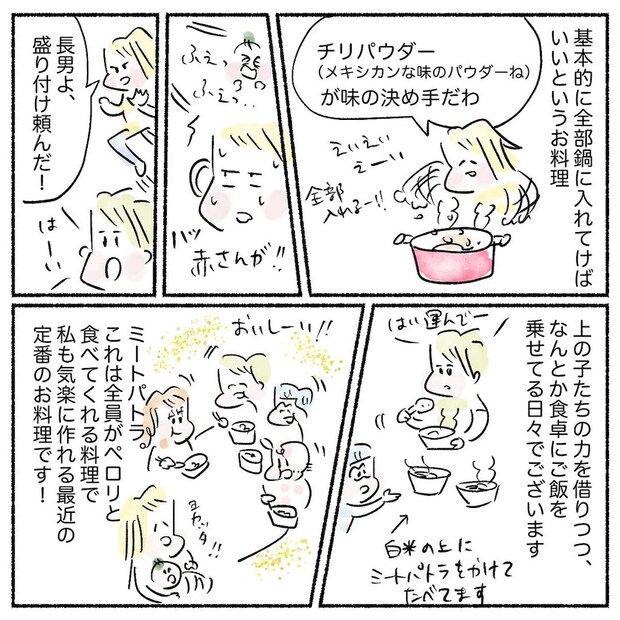 基本的に全部鍋に入れてけば
いいというお料理
チリパウダー
（メキシカンな味のパウダーね）
が味の決め手だわ
えいえい
えーい
全部
入れるー!!
ふえっ
ふえっ…
ハッ
赤さんが!!
長男よ、
盛り付け頼んだ！
はーい
上の子たちの力を借りつつ、
なんとか食卓にご飯を
乗せてる日々でございます
はい運んでー
白米の上に
ミートパトラをかけて
たべてます
おいしーい!!
ミートパトラ。
これは全員がペロリと
食べてくれる料理で
私も気楽に作れる最近の
定番のお料理です！
ヨカッタ!!